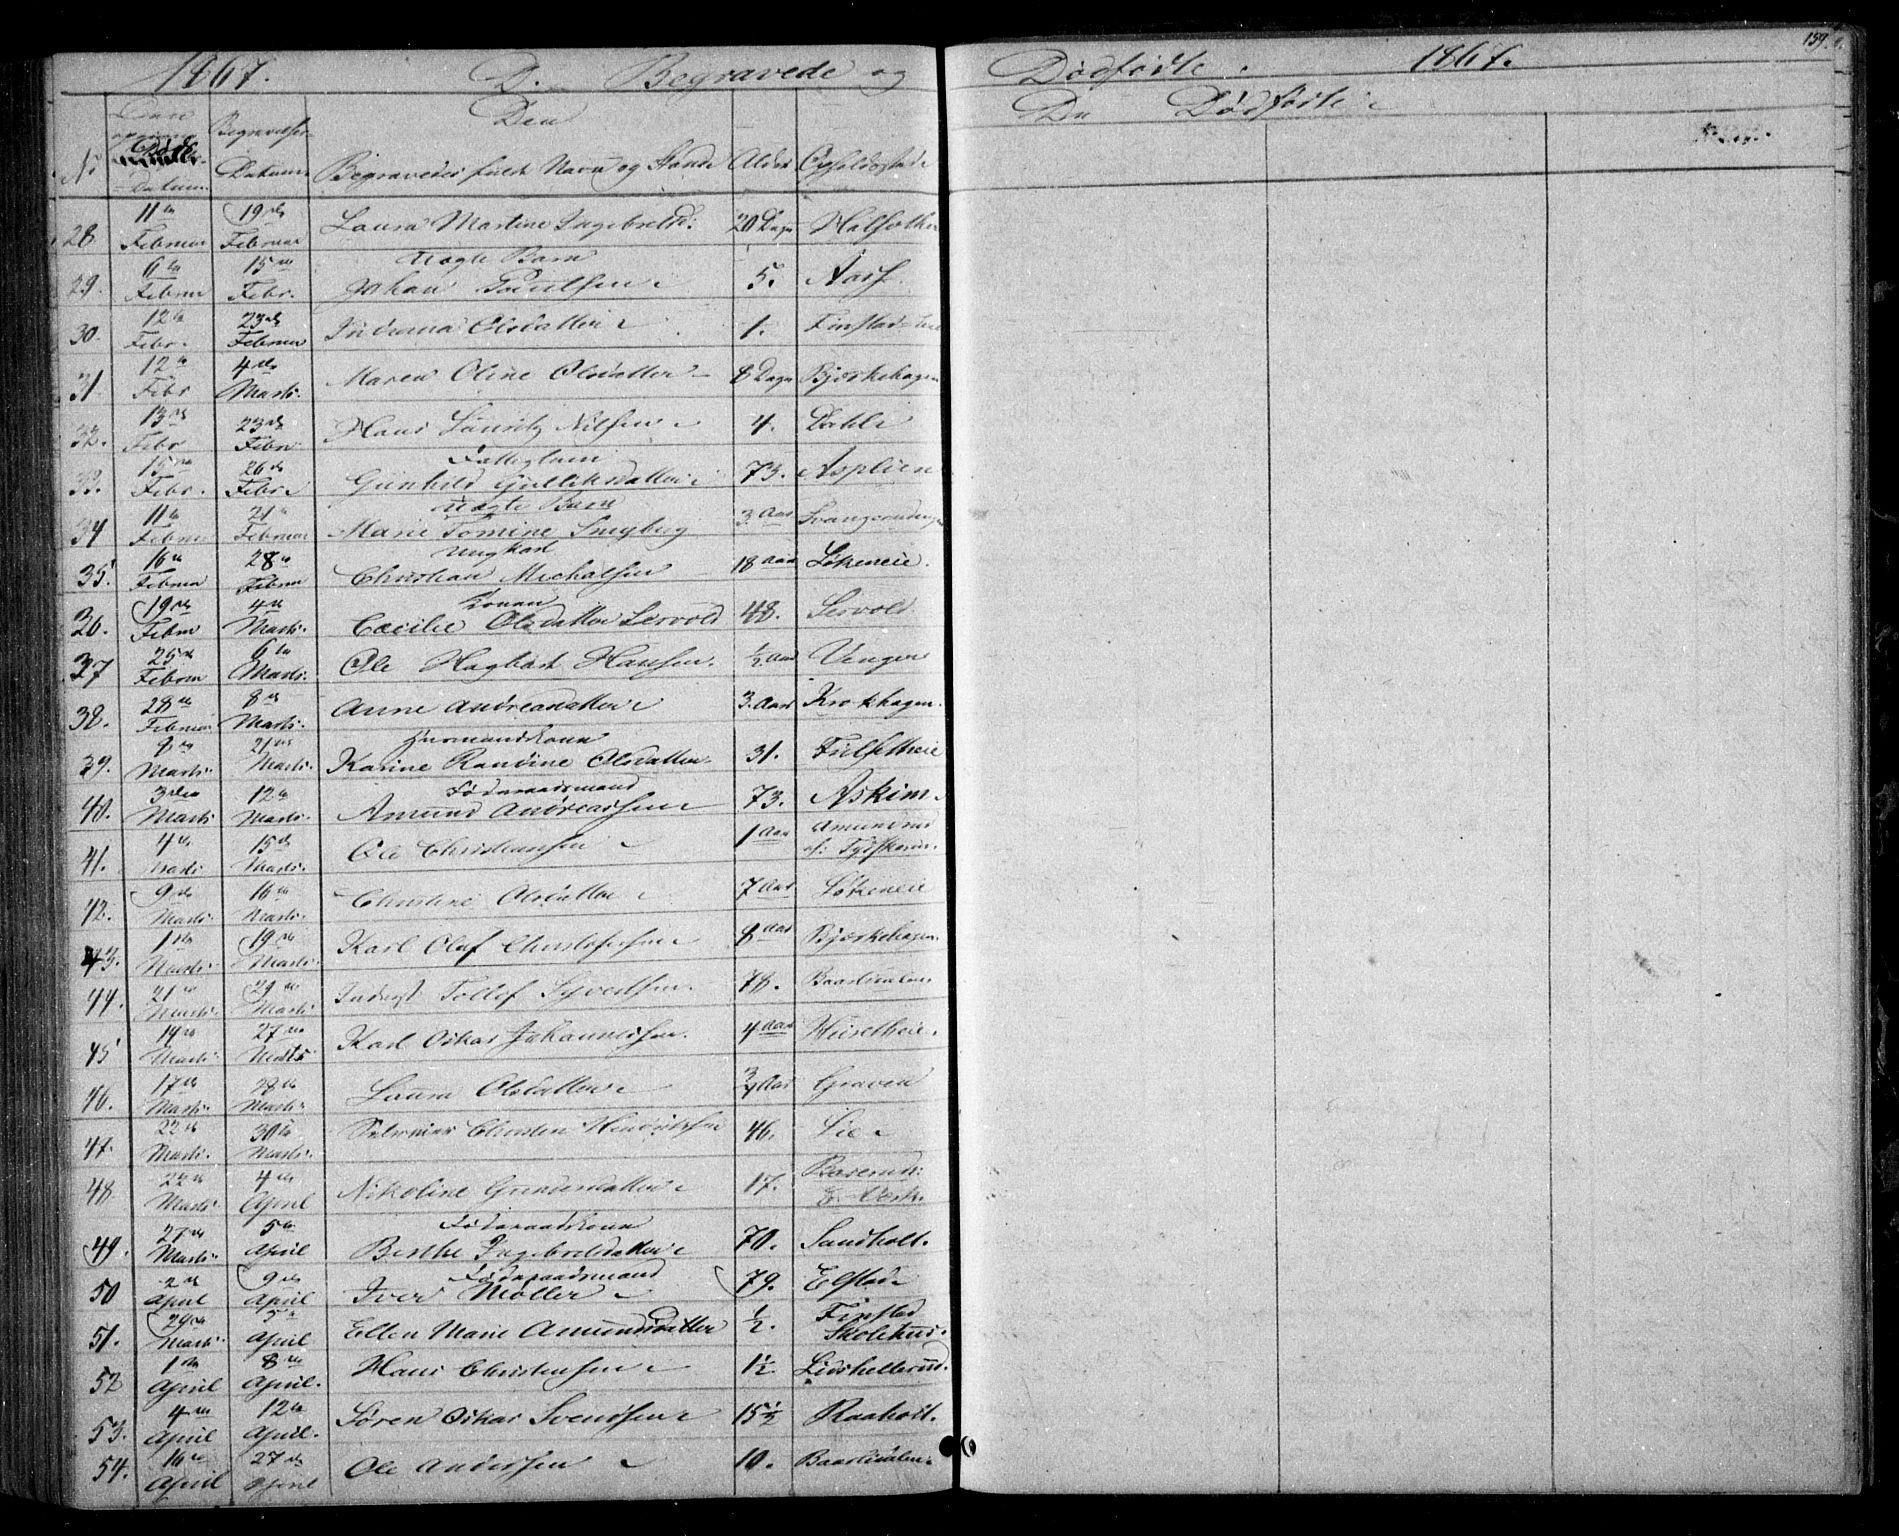 1867. D. Begravede og Dødfødte. 1867. 159.
De Dødfødte
No Døds Datum. Begravelses Datum Den Begravedes fulde Navn og Stand Alder Opholdssted
28. 11te Februar 19de Februar Laura Martine Ingebretsd: 20 Dage
Uægte Barn
29. 6te Februar 15de Febr. Johan Paulsen 5. Aass
30. 12te Febr. 23de Februar Indiana Olsdatter 1. Finstad
31. 12te Febr 4de Marts. Maren Oline Olsdatter 8 Dage Bjerkehagen
32. 13de Febr 23de Febr Hans Lauritz Nilsen 4. Dahl
Fattiglem
33. 15de Febr. 26de Febr. Gunhild Gulliksdatter 73. Asplien
Uægte Barn
34 11te Februar 21de Februar Marie Tomine Smeby 3. Aar
Ungkarl
35. 16de Februar 28de Februar Christian Michalsen 18 Aar Løkeneie.
Konen
36. 19de Febru 4de Marts. Cæcilie Olsdatter Lervold 48. Lervold
37 25de Februar 6te Marts. Ole Hagbart Hansen. ½ Aar Vengen
38. 28de Februar 8de Marts. Anne Andreasdatter 3. Aar Krokhagen.
Huusmandskone
39. 8de Marts. 21de Marts. Karine Randine Olsdatter 31.
Føderaadsmand
40. 3die Marts 12te Marts. Amund Andreassen 73. Askim
41. 4de Marts 15de Marts. Ole Christiansen 1 Aar Amundrud
42. 9de Marts. 16de Marts. Christine Olsdatter 7 Aar Løkeneie
43. 1ste Marts. 19de Marts. Karl Olaf Christofersen 8 Aar Bjerkehagen.
44. 21de Marts. 29de Marts. Inderst Tollof Syvertsen. 78.
45 14de Marts. 27de Marts Karl Oskar Johannessen. 4 Aar
46. 17de Marts. 28de Marts. Laura Olsdatter ¾ Aar Graven
47. 22de Marts. 30te Marts. Christen Hendriksen 46. Lie
48. Marts. 4de April Nikoline Gundersdatter 17.
Føderaadskone
49. 27de Marts. 5te April Berthe Ingebretsdatter 70. Sandholt.
Føderaadsmand
50 2de April 9de April Iver Møller 79. Elstad
51. 29de Marts. 5te April Ellen Marie Amundsdatter ½. Finstad Skolehus.
52 1ste April 8de April. Hans Christensen 1½
53. 4de April 12te April. Søren Oskar Svendsen 15½ Raaholt.
54. 16de April 27de April Ole Anderssen 10.